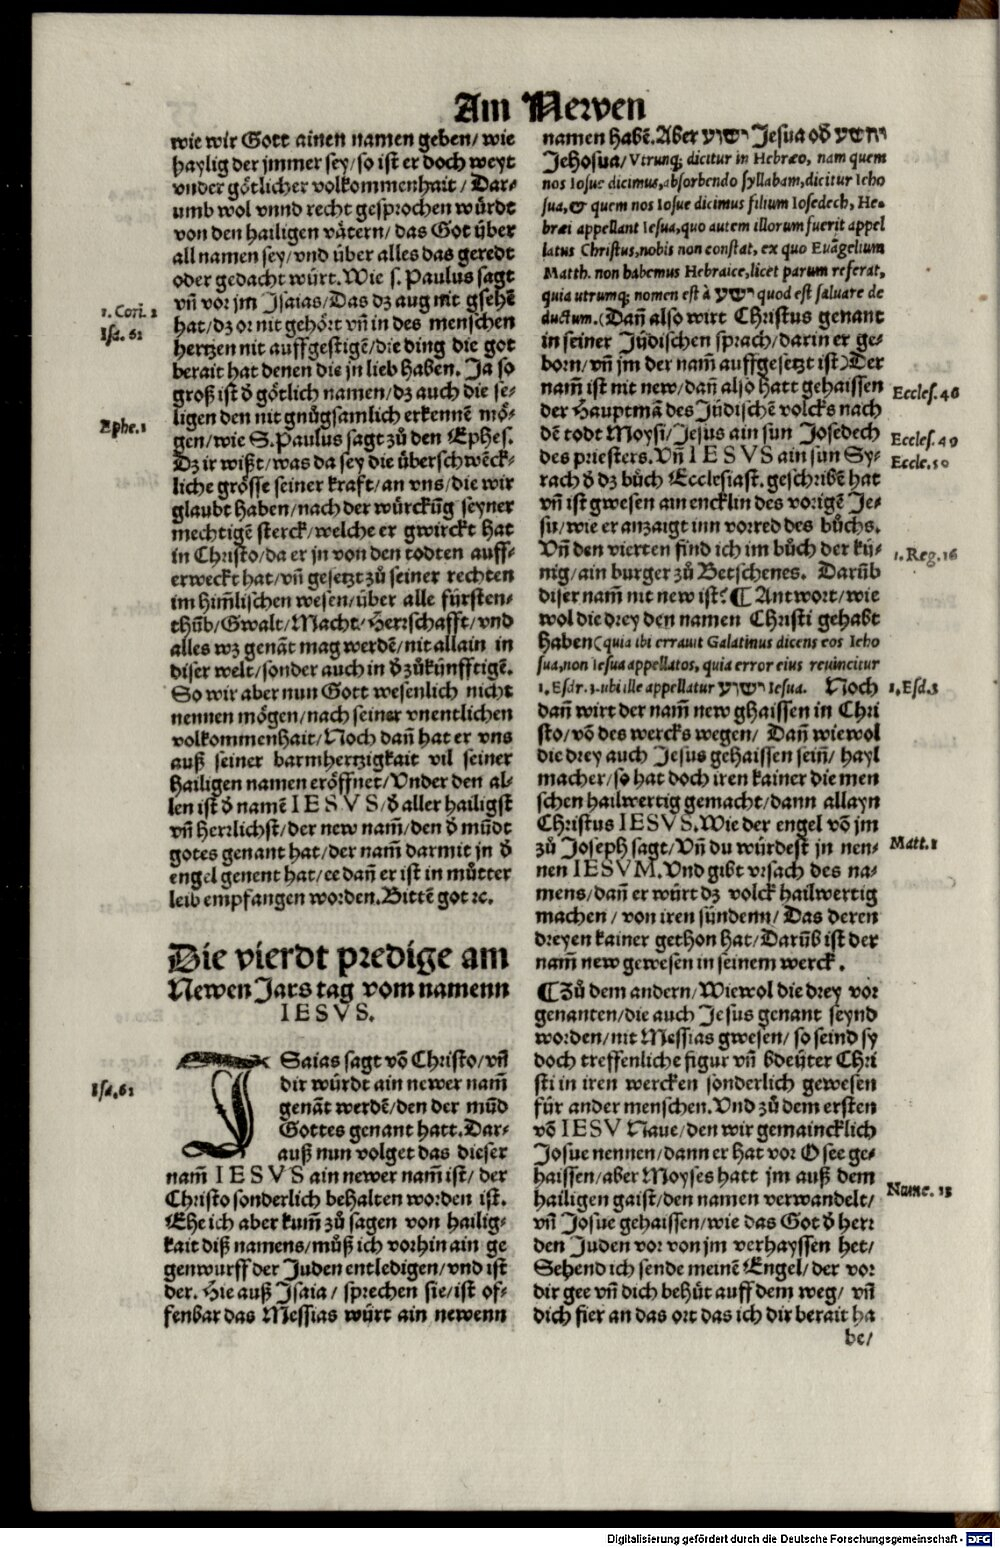 Am Newen
wie wir Gott ainen namen geben/ wie
haylig der jmmer sey/ so ist er doch weyt
vnder götlicher volkommenhait/ Dar-
umb wol vnnd recht gesprochen würdt
von den hailigen vätern/ das Got über
all namen sey/ vnd über alles das geredt
oder gedacht würt. Wie s. Paulus sagt
vn̄ vor jm Jsaias/ Das dz aug nit gsehē
hat/ dz or nit gehört vn̄ in des menschen
hertzen nit auffgestigē/ die ding die got
berait hat denen die jn lieb haben. Ja so
groß ist d̄ götlich namen/ dz auch die se-
ligen den nit gnůgsamlich erkennē mö-
gen/ wie S. Paulus sagt zů den Ephes.
Dz ir wißt/ was da sey die überschwēck-
liche grösse seiner kraft/ an vns/ die wir
glaubt haben/ nach der würckūg seyner
mechtigē sterck/ welche er gwirckt hat
in Christo/ da er jn von den todten auff-
erweckt hat/ vn̄ gesetzt zů seiner rechten
im him̄lischen wesen/ über alle fürsten-
thūb/ Gwalt/ Macht/ Herrschafft/ vnd
alles wz genāt mag werdē/ nit allain in
diser welt/ sonder auch in d̄ zůkünfftigē.
So wir aber nun Gott wesenlich nicht
nennen mögen/ nach seiner vnentlichen
volkommenhait/ Noch dan̄ hat er vns
auß seiner barmhertzigkait vil seiner
hailigen namen eröffnet/ Vnder den al-
len ist d̄ namē IESVS/ d̄ aller hailigst
vn̄ herrlichst/ der new nam̄/ den d̄ mūdt
gotes genant hat/ der nam̄ darmit jn d̄
engel genent hat/ ee dan̄ er ist in můtter
leib empfangen worden. Bittē got ꝛc.
Die vierdt predige am
Newen Jars tag vom namenn
IESVS.
JSaias sagt vō Christo/ vn̄
dir würdt ain newer nam̄
genāt werdē/ den der mūd
Gottes genant hatt. Dar-
auß nun volget das dieser
nam̄ IESVS ain newer nam̄ ist/ der
Christo sonderlich behalten worden ist.
Ehe ich aber kum̄ zů sagen von hailig-
kait diß namens/ můß ich vorhin ain ge
genwurff der Juden entledigen/ vnd ist
der. Hie auß Jsaia/ sprechen sie/ ist of-
fenbar das Messias würt ain newenn
1. Cori. 2
Isa. 61
Ephe. 1
Isa. 62
namen habē. Aber ישוע Jesua od̄ יהושע
Jehosua/ Vtrunq; dicitur in Hebræo, nam quem
nos Iosue dicimus, absorbendo syllabam, dicitur Ieho
sua, & quem nos Iosue dicimus filium Iosedech, He-
bræi appellant Iesua, quo autem illorum fuerit appel
latus Christus, nobis non constat, ex quo Euāgelium
Matth. non habemus Hebraice, licet parum referat,
quia utrumq; nomen est à ישע quod est saluare de
ductum. (Dan̄ also wirt Christus genant
in seiner Jüdischen sprach/ darin er ge-
born/ vn̄ jm der nam̄ auffgesetzt ist) Der
nam̄ ist nit new/ dan̄ also hatt gehaissen
der Hauptmā des Jüdischē volcks nach
dē todt Moysi/ Jesus ain sun Josedech
des priesters. Vn̄ IESVS ain sun Sy-
rach d̄ dz bůch Ecclesiast. geschribē hat
vn̄ ist gwesen ain encklin des vorigē Je-
su/ wie er anzaigt inn vorred des bůchs.
Vn̄ den vierten find ich im bůch der kü-
nig/ ain burger zů Betschenes. Darūb
diser nam̄ nit new ist? ¶ Antwort/ wie
wol die drey den namen Christi gehabt
haben (quia ibi errauit Galatinus dicens eos Ieho
sua, non Iesua appellatos, quia error eius reuincitur
1. Esdr. 3. ubi ille appellatur ישוע Iesua. Noch
dan̄ wirt der nam̄ new ghaissen in Chri
sto/ vō des wercks wegen/ Dan̄ wiewol
die drey auch Jesus gehaissen sein̄/ hayl
macher/ so hat doch iren kainer die men
schen hailwertig gemacht/ dann allayn
Christus IESVS. Wie der engel vō jm
zů Joseph sagt/ Vn̄ du würdest jn nen-
nen IESVM. Vnd gibt vrsach des na-
mens/ dan̄ er würt dz volck hailwertig
machen/ von iren sündenn/ Das deren
dreyen kainer gethon hat/ Darūb ist der
nam̄ new gewesen in seinem werck.
¶ Zů dem andern/ Wiewol die drey vor
genanten/ die auch Jesus genant seynd
worden/ nit Messias gwesen/ so seind sy
doch treffenliche figur vn̄ bdeüter Chri
sti in iren wercken sonderlich gewesen
für ander menschen. Vnd zů dem ersten
vō IESV Naue/ den wir gemaincklich
Josue nennen/ dann er hat vor Osee ge-
haissen/ aber Moyses hatt jm auß dem
hailigen gaist/ den namen verwandelt/
vn̄ Josue gehaissen/ wie das Got d̄ herr
den Juden vor von jm verhayssen het/
Sehend ich sende meinē Engel/ der vor
dir gee vn̄ dich behüt auff dem weg/ vn̄
dich fier an das ort das ich dir berait ha
be/
Eccles. 46
Eccles. 49
Eccle. 50
1. Reg. 16
1. Esd. 3
Matt. 1
Nume. 13
Digitalisierung gefördert durch die Deutsche Forschungsgemeinschaft - DFG